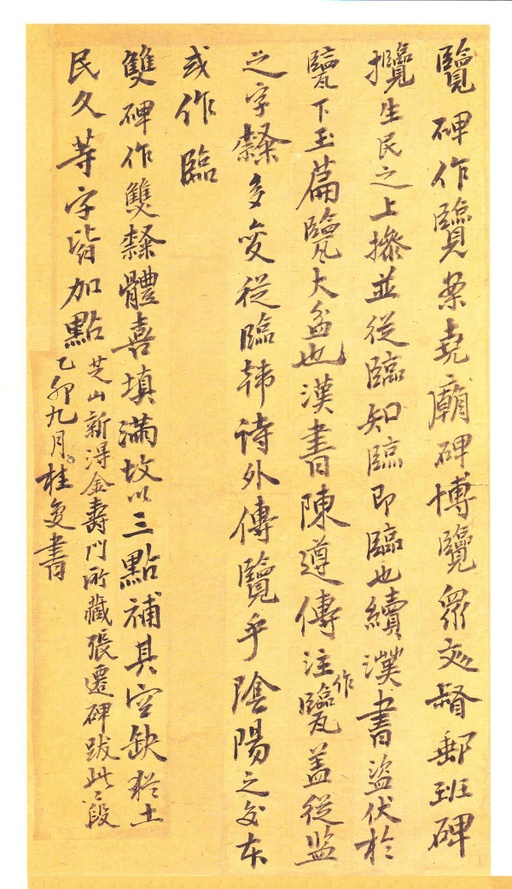 覽碑作覽案堯廟碑博覽眾文督郵班碑
攬生民之上擥並從臨知臨即臨也續漢書盜伏於
甖下玉篇甖大盆也漢書陳遵傳注作甖蓋從監
之字隸多變從臨韓詩外傳覽乎陰陽之交本
或作臨
雙碑作雙隸體喜填滿故以三點補其空缺猶土
民久等字皆加點
芝山新得金壽門所藏張遷碑跋此二段
乙卯九月桂复書